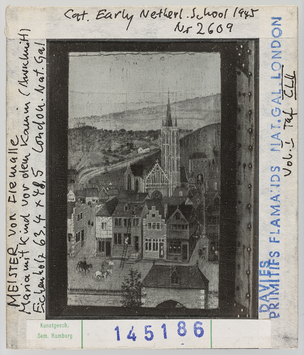 Cat. Early Netherl. School 1945
Nr 2609
MEISTER VON FLEMALLE
Maria mit Kind vor dem Kamin (Ausschnitt)
Eichenholz 63,4 x 48,5 London. Nat. Gal
DAVIES
PRIMITIFS FLAMANDS NAT. GAL LONDON
Vol. I Taf
Kunstgesch.
Sem. Hamburg
145186